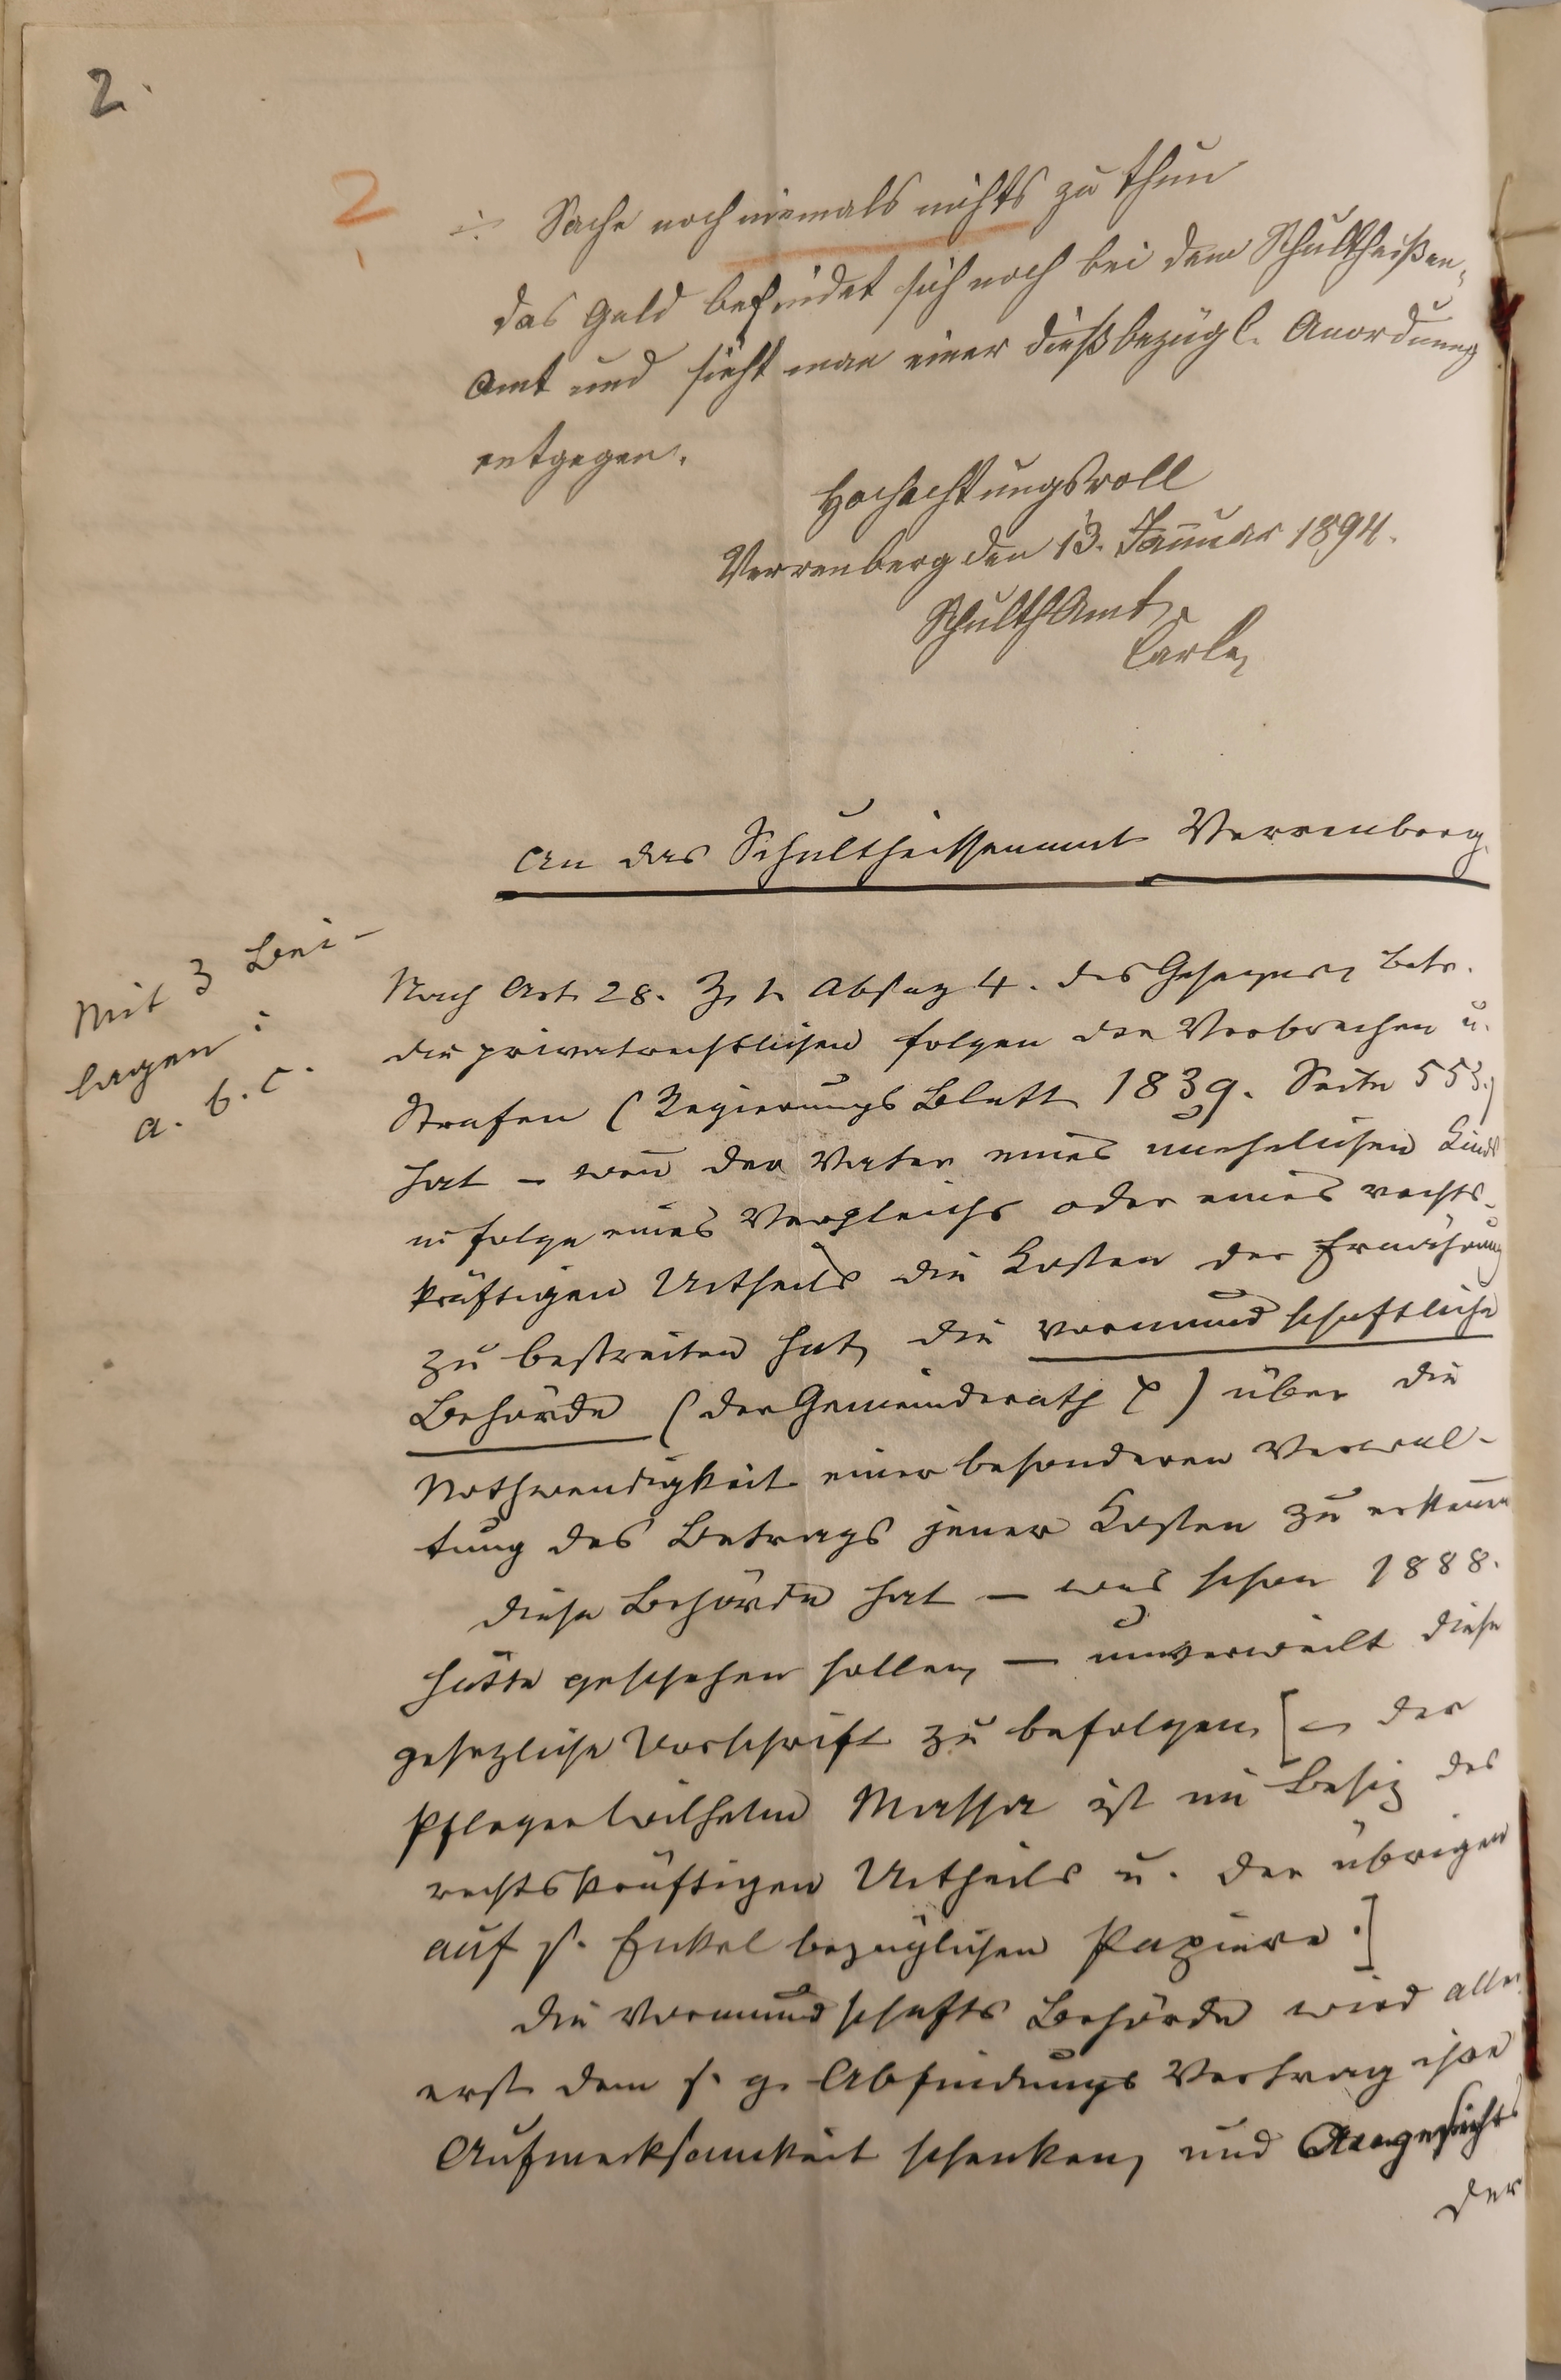 2.
2
÷ Sache noch niemals nichts zu thun
das Geld befindet sich noch bei dem Schultheißen-
Amt und sieht man einer dießbezügl. Anordnung
entgegen.
Hochachtungsvoll
Verrenberg den 13. Januar 1894.
SchulthAmt
Carle
An das Schultheissenamt Verrenberg.
Mit 3 Bei-
lagen:
a. b. c.
Nach Art. 28. Z. 1. Absaz 4. des Gesezes, betr.
die privatrechtlichen Folgen der Verbrechen u.
Strafen (Regierungs Blatt 1839. Seite 553.)
hat – weñ der Vater eines unehelichen Kinds
in Folge eines Vergleichs oder eines rechts-
kräftigen Urtheils die Kosten der Ernährung
zu bestreiten hat, die vormundschaftliche
Behörde (der Gemeinderath) über die
Nothwendigkeit einer besonderen Verwal-
tung des Betrags jener Kosten zu erkennen
diese Behörde hat – was schon 1888.
hätte geschehen sollen, – unverweilt diese
gesezliche Vorschrift zu befolgen, [– der
Pfleger Wilhelm Massa ist im Besiz des
rechtskräftigen Urtheils u. der übrigen
auf s. Enkel bezüglichen Papiere.]
die Vormundschafts Behörde wird aller-
erst dem s. g. Abfindungs Vertrag ihre
Aufmerksamkeit schenken, und Angesichts
der